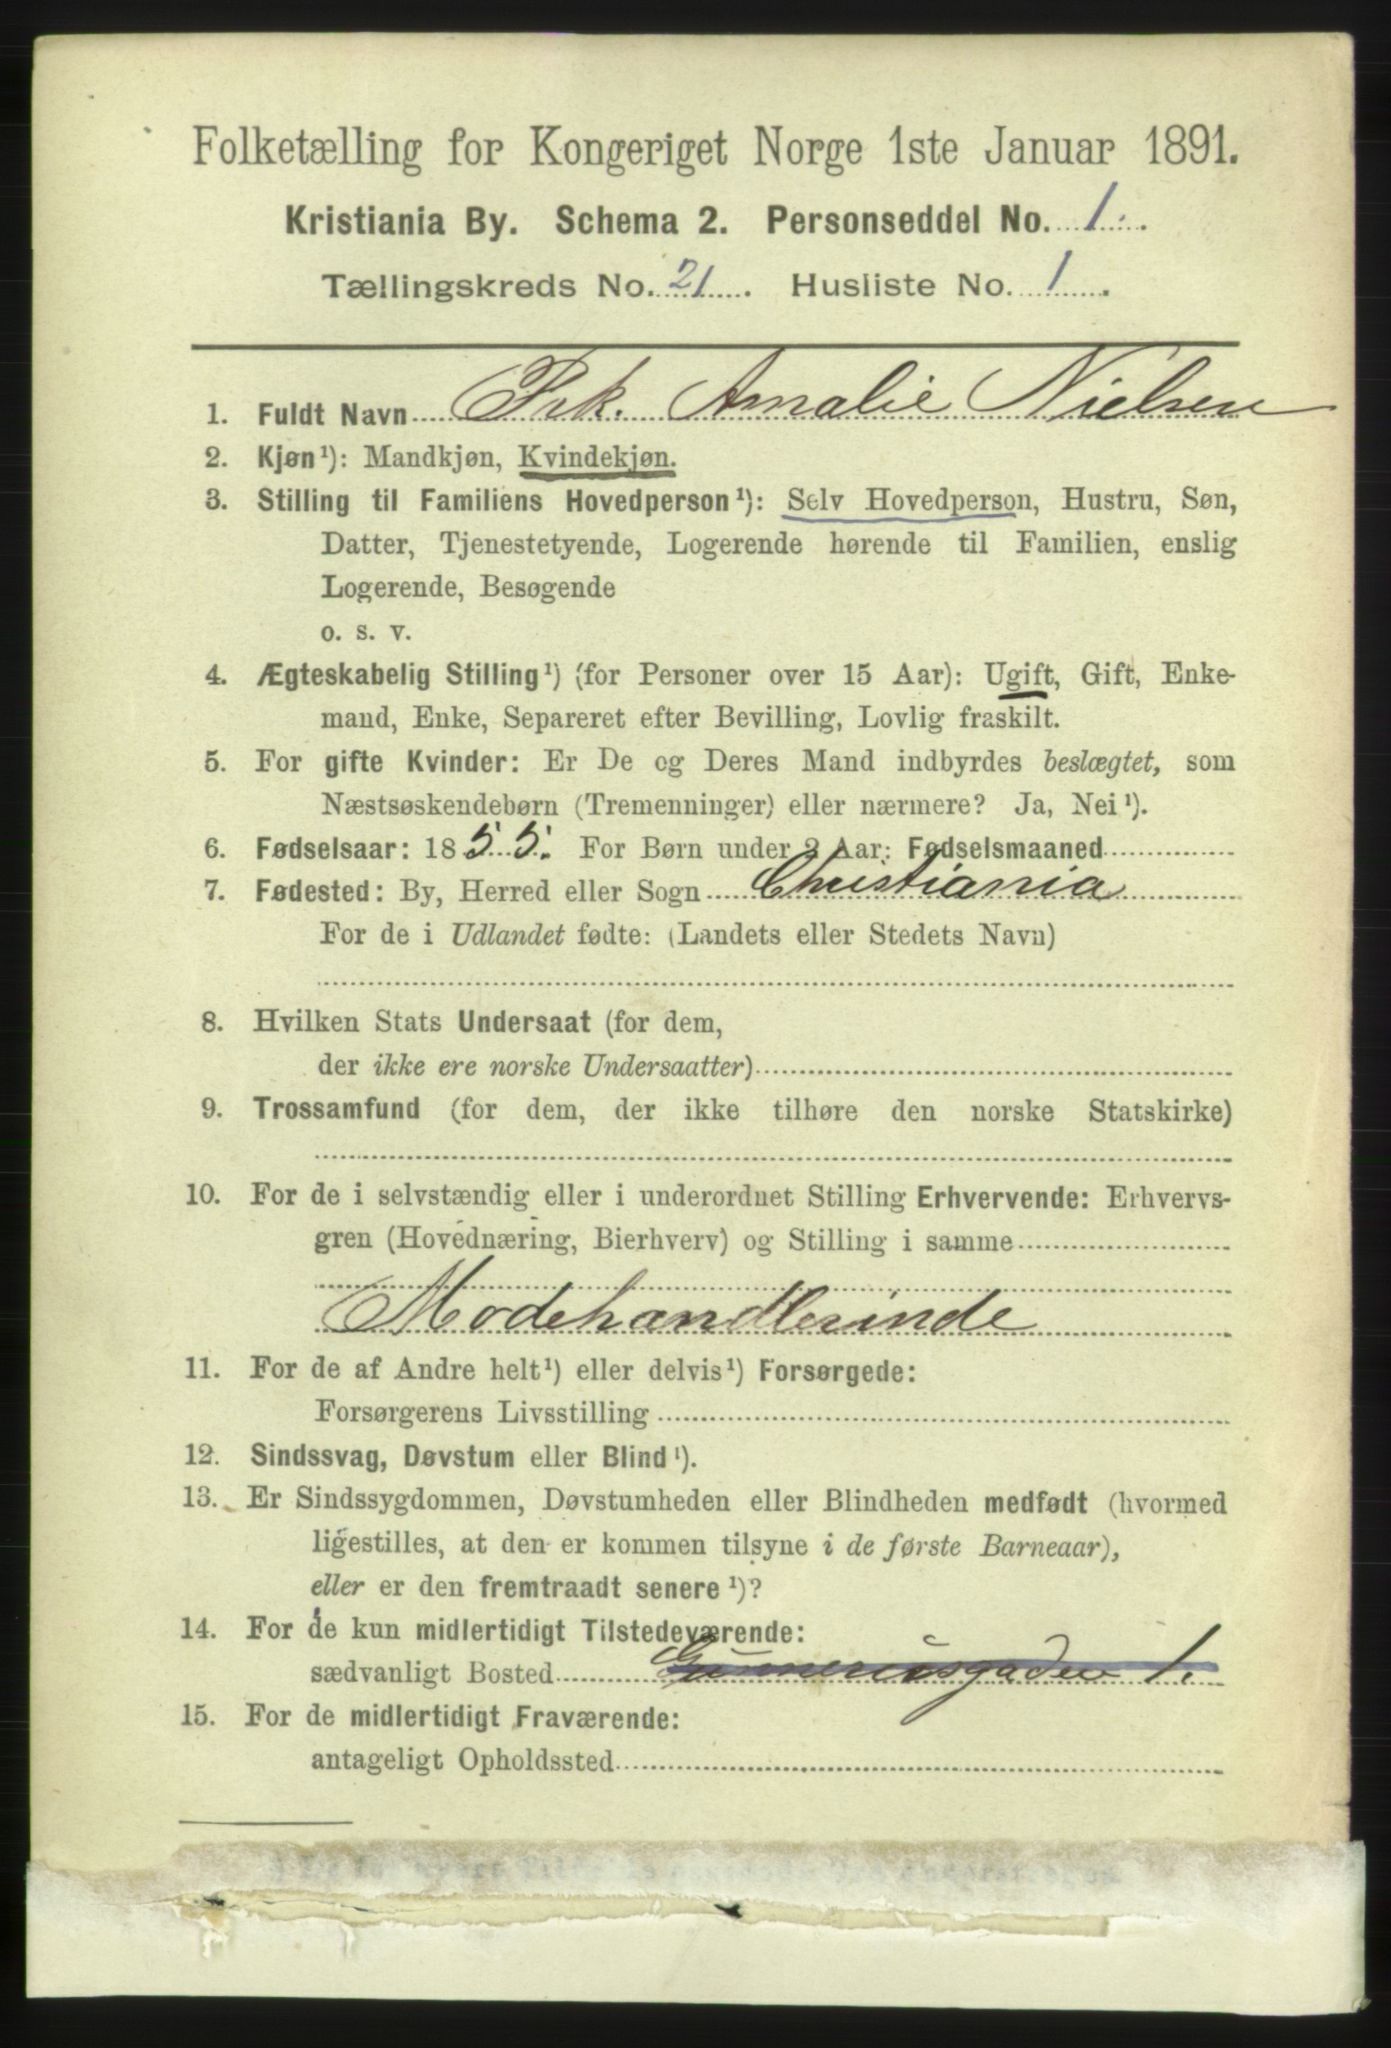 Folketælling for Kongeriget Norge 1ste Januar 1891.
Kristiania By. Schema 2. Personseddel No. 1.
Tællingskreds No. 21. Husliste No. 1.
1. Fuldt Navn Frk. Amalie Nielsen
2. Kjøn¹): Mandkjøn, Kvindekjøn.
3. Stilling til Familiens Hovedperson¹): Selv Hovedperson, Hustru, Søn,
Datter, Tjenestetyende, Logerende hørende til Familien, enslig
Logerende, Besøgende
o. s. v.
4. Ægteskabelig Stilling¹) (for Personer over 15 Aar): Ugift, Gift, Enke-
mand, Enke, Separeret efter Bevilling, Lovlig fraskilt.
5. For gifte Kvinder: Er De og Deres Mand indbyrdes beslægtet, som
Næstsøskendebørn (Tremenninger) eller nærmere? Ja, Nei¹).
6. Fødselsaar: 1855. For Børn under 2 Aar: Fødselsmaaned
7. Fødested: By, Herred eller Sogn Christiania
For de i Udlandet fødte: (Landets eller Stedets Navn)
8. Hvilken Stats Undersaat (for dem,
der ikke ere norske Undersaatter)
9. Trossamfund (for dem, der ikke tilhøre den norske Statskirke)
10. For de i selvstændig eller i underordnet Stilling Erhvervende: Erhvervs-
gren (Hovednæring, Bierhverv) og Stilling i samme
Modehandlerinde
11. For de af Andre helt¹) eller delvis¹) Forsørgede:
Forsørgerens Livsstilling
12. Sindssvag, Døvstum eller Blind¹).
13. Er Sindssygdommen, Døvstumheden eller Blindheden medfødt (hvormed
ligestilles, at den er kommen tilsyne i de første Barneaar),
eller er den fremtraadt senere¹)?
14. For de kun midlertidigt Tilstedeværende:
sædvanligt Bosted Gunneriusgaden 1.
15. For de midlertidigt Fraværende:
antageligt Opholdssted